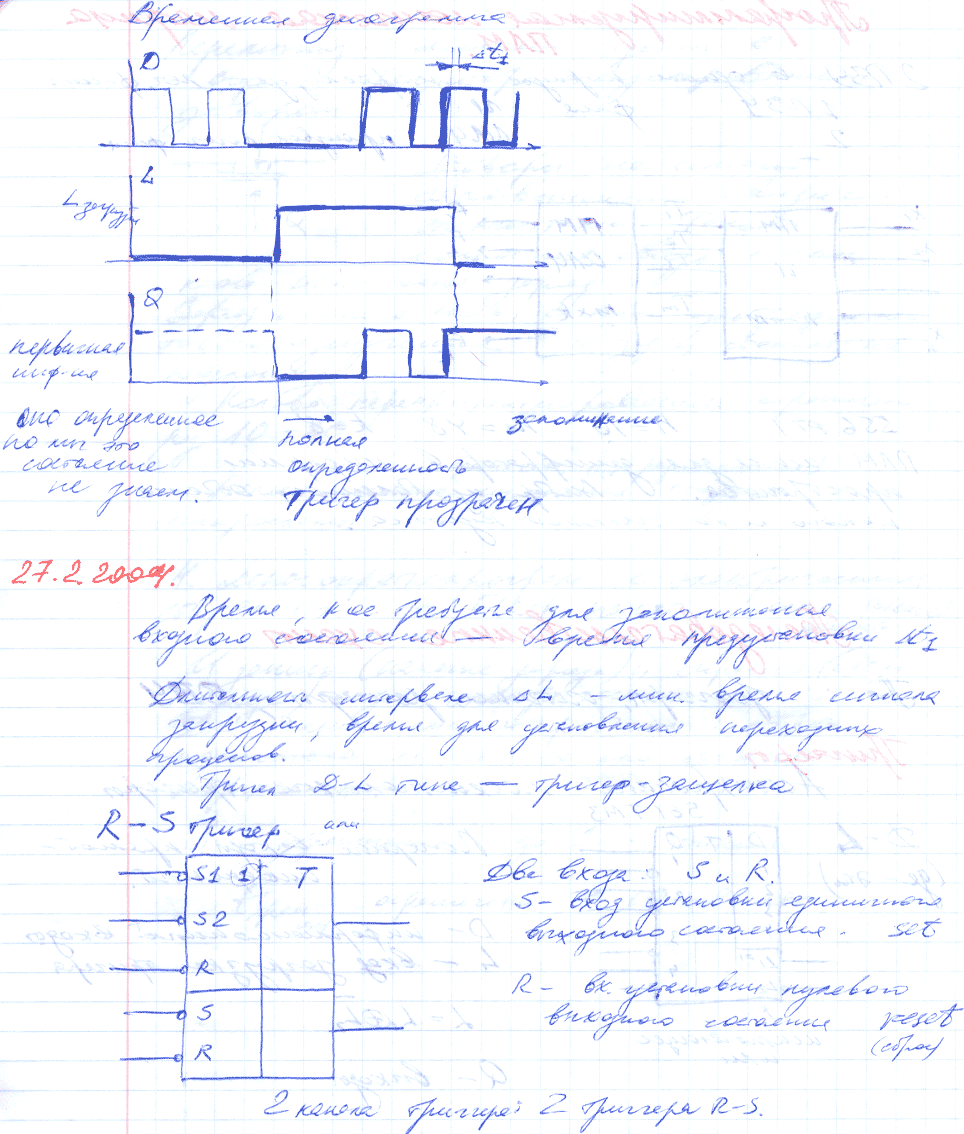 Временная диаграмма
D
Δt1
L
L загрузки
Q
первичная
инф-ия
оно определенное
но мы это
состояние
не знаем.
полная
определенность
Тригер прозрачен
запоминание
27.2.2004.
Время, кое требуется для запоминания
входного состояния — время предустановки Δt1
Длительность интервала ΔL – мин. время сигнала
загрузки, время для установления переходных
процессов.
Тригер D-L типа — тригер-защелка
R-S тригер
S1 1 T
S2
R
S
R
Два входа: S и R.
S- вход установки единичного
выходного состояния. set
R- вх. установки нулевого
выходного состояния reset
(сброс)
2 канала триггера: 2 триггера R-S.